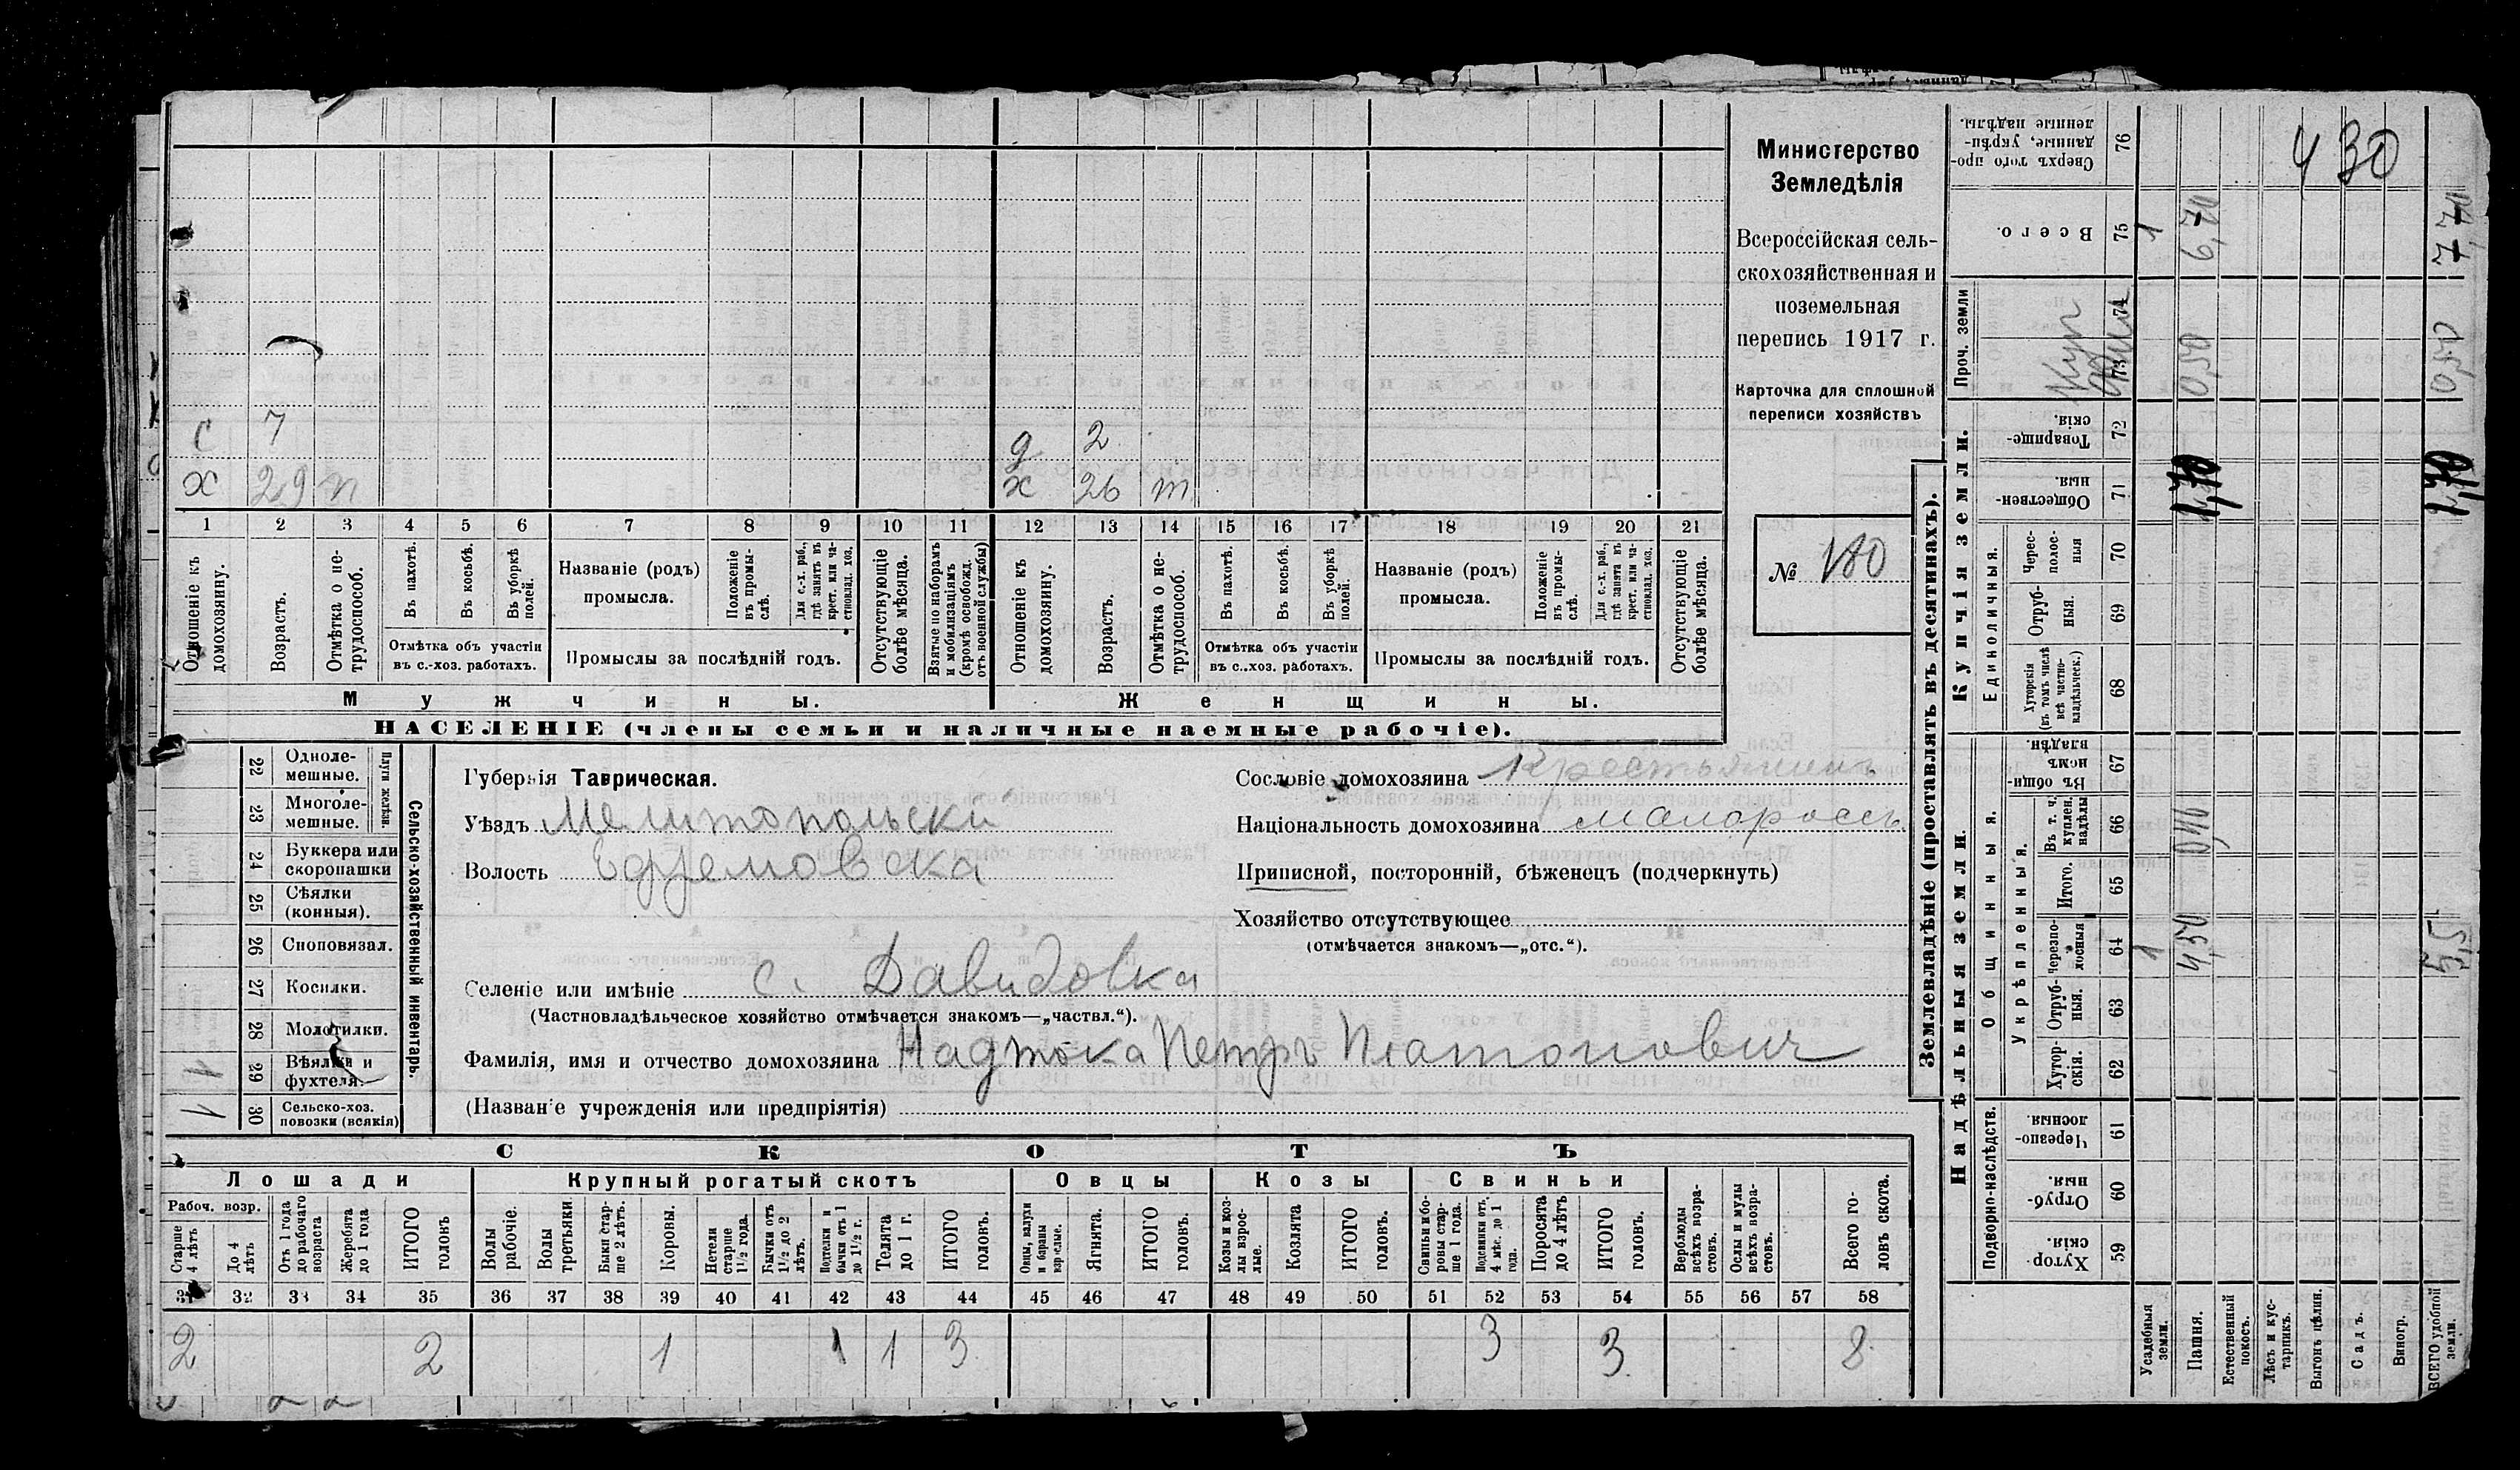 с 7
х 29 п
д 2
х 26 т
1 2 3 4 5 6 7 8 9 10 11 12 13 14 15 16 17 18 19 20 21
Отношеніе къ домохозяину.
Возрастъ.
Отмѣтка о нетрудоспособ.
Въ пахотѣ.
Въ косьбѣ.
Въ уборкѣ полей.
Отмѣтка объ участіи
въ с.-хоз. работахъ.
Названіе (родъ)
промысла.
Положеніе въ промыслѣ.
Для с.-х. раб., гдѣ занятъ въ крест. или частновлад. хоз.
Промыслы за послѣдній годъ.
Отсутствующіе болѣе мѣсяца.
Взятые по наборамъ и мобилизаціямъ (кромѣ освобожд. отъ военной службы)
Отношеніе къ домохозяину.
Возрастъ.
Отмѣтка о нетрудоспособ.
Въ пахотѣ.
Въ косьбѣ.
Въ уборкѣ полей.
Отмѣтка объ участіи
въ с.-хоз. работахъ.
Названіе (родъ)
промысла.
Положеніе въ промыслѣ.
Для с.-х. раб., гдѣ занята въ крест. или частновлад. хоз.
Промыслы за послѣдній годъ.
Отсутствующіе болѣе мѣсяца.
Мужчины.
Женщины.
НАСЕЛЕНІЕ (члены семьи и наличные наемные рабочіе).
Министерство
Земледѣлія
Всероссійская сель-
скохозяйственная и
поземельная
перепись 1917 г.
Карточка для сплошной
переписи хозяйствъ
№ 180
22 Одноле-
мешные.
23 Многоле-
мешные.
Плуги желѣзн.
24 Буккера или
скоропашки
25 Сѣялки
(конныя).
26 Сноповязал.
27 Косилки.
28 Молотилки.
1 29 Вѣялки и
фухтеля.
1 30 Сельско-хоз.
повозки (всякія)
Сельско-хозяйственный инвентарь.
Губернія Таврическая.
Уѣздъ Мелитопольски
Волость Ефремовска
Селеніе или имѣніе с. Давидовка
(Частновладѣльческое хозяйство отмѣчается знакомъ—„частвл.“).
Фамилія, имя и отчество домохозяина Надтока Петръ Платонович
(Названіе учрежденія или предпріятія)
Сословіе домохозяина Крестьянинъ
Національность домохозяина малороссъ
Приписной, посторонній, бѣженецъ (подчеркнуть)
Хозяйство отсутствующее
(отмѣчается знакомъ—„отс.“).
СКОТЪ
Лошади Крупный рогатый скотъ Овцы Козы Свиньи
Рабоч. возр.
Старше 4 лѣтъ
До 4 лѣтъ
Отъ 1 года до рабочаго возраста
Жеребята до 1 года
ИТОГО головъ
Волы рабочіе.
Волы третьяки.
Быки старше 2 лѣтъ.
Коровы.
Нетели старше 1½ года.
Бычки отъ 1½ до 2 лѣтъ.
Подтелки и бычки отъ 1 до 1½ г.
Телята до 1 г.
ИТОГО головъ.
Овцы, валухи и бараны взрослые.
Ягнята.
ИТОГО головъ.
Козы и козлы взрослые.
Козлята
ИТОГО головъ.
Свиньи и боровы старше 1 года.
Подсвинки отъ 4 мѣс. до 1 года.
Поросята до 4 лѣтъ
ИТОГО головъ.
Верблюды всѣхъ возрастовъ.
Ослы и мулы всѣхъ возрастовъ.
Всего головъ скота.
31 32 33 34 35 36 37 38 39 40 41 42 43 44 45 46 47 48 49 50 51 52 53 54 55 56 57 58
2 2 1 1 1 3 3 3 8
Землевладѣніе (проставлять въ десятинахъ).
Надѣльныя земли.
Купчія земли.
Проч. земли
Подворно-наслѣдств.
Общинныя.
Укрѣпленныя.
Единоличныя.
76 Сверхъ того про-
данные, укрѣп-
ленные надѣлы.
75 Всего.
74
73
72 Товарище-
скія
71 Обществен-
ныя
70 Черес-
полос-
ныя
69 Отруб-
ныя.
68 Хуторскія
(въ томъ числѣ
всѣ частно-
владѣльческ.)
67 Въ общи-
номъ
владѣн.
66 Въ т. ч.
куплен.
надѣлы
65 Итого.
64 Черезпо-
лосныя
63 Отруб-
ныя.
62 Хутор-
скія.
61 Черезпо-
лосныя
60 Отруб-
ныя.
59 Хутор-
скія.
Усадебныя земли.
Пашня.
Естественный покосъ.
Лѣсъ и кустарникъ.
Выгонъ цѣлин.
Садъ.
Виногр.
ВСЕГО удобной земли.
430
1 6,70
0,50 0,50
1 4,50